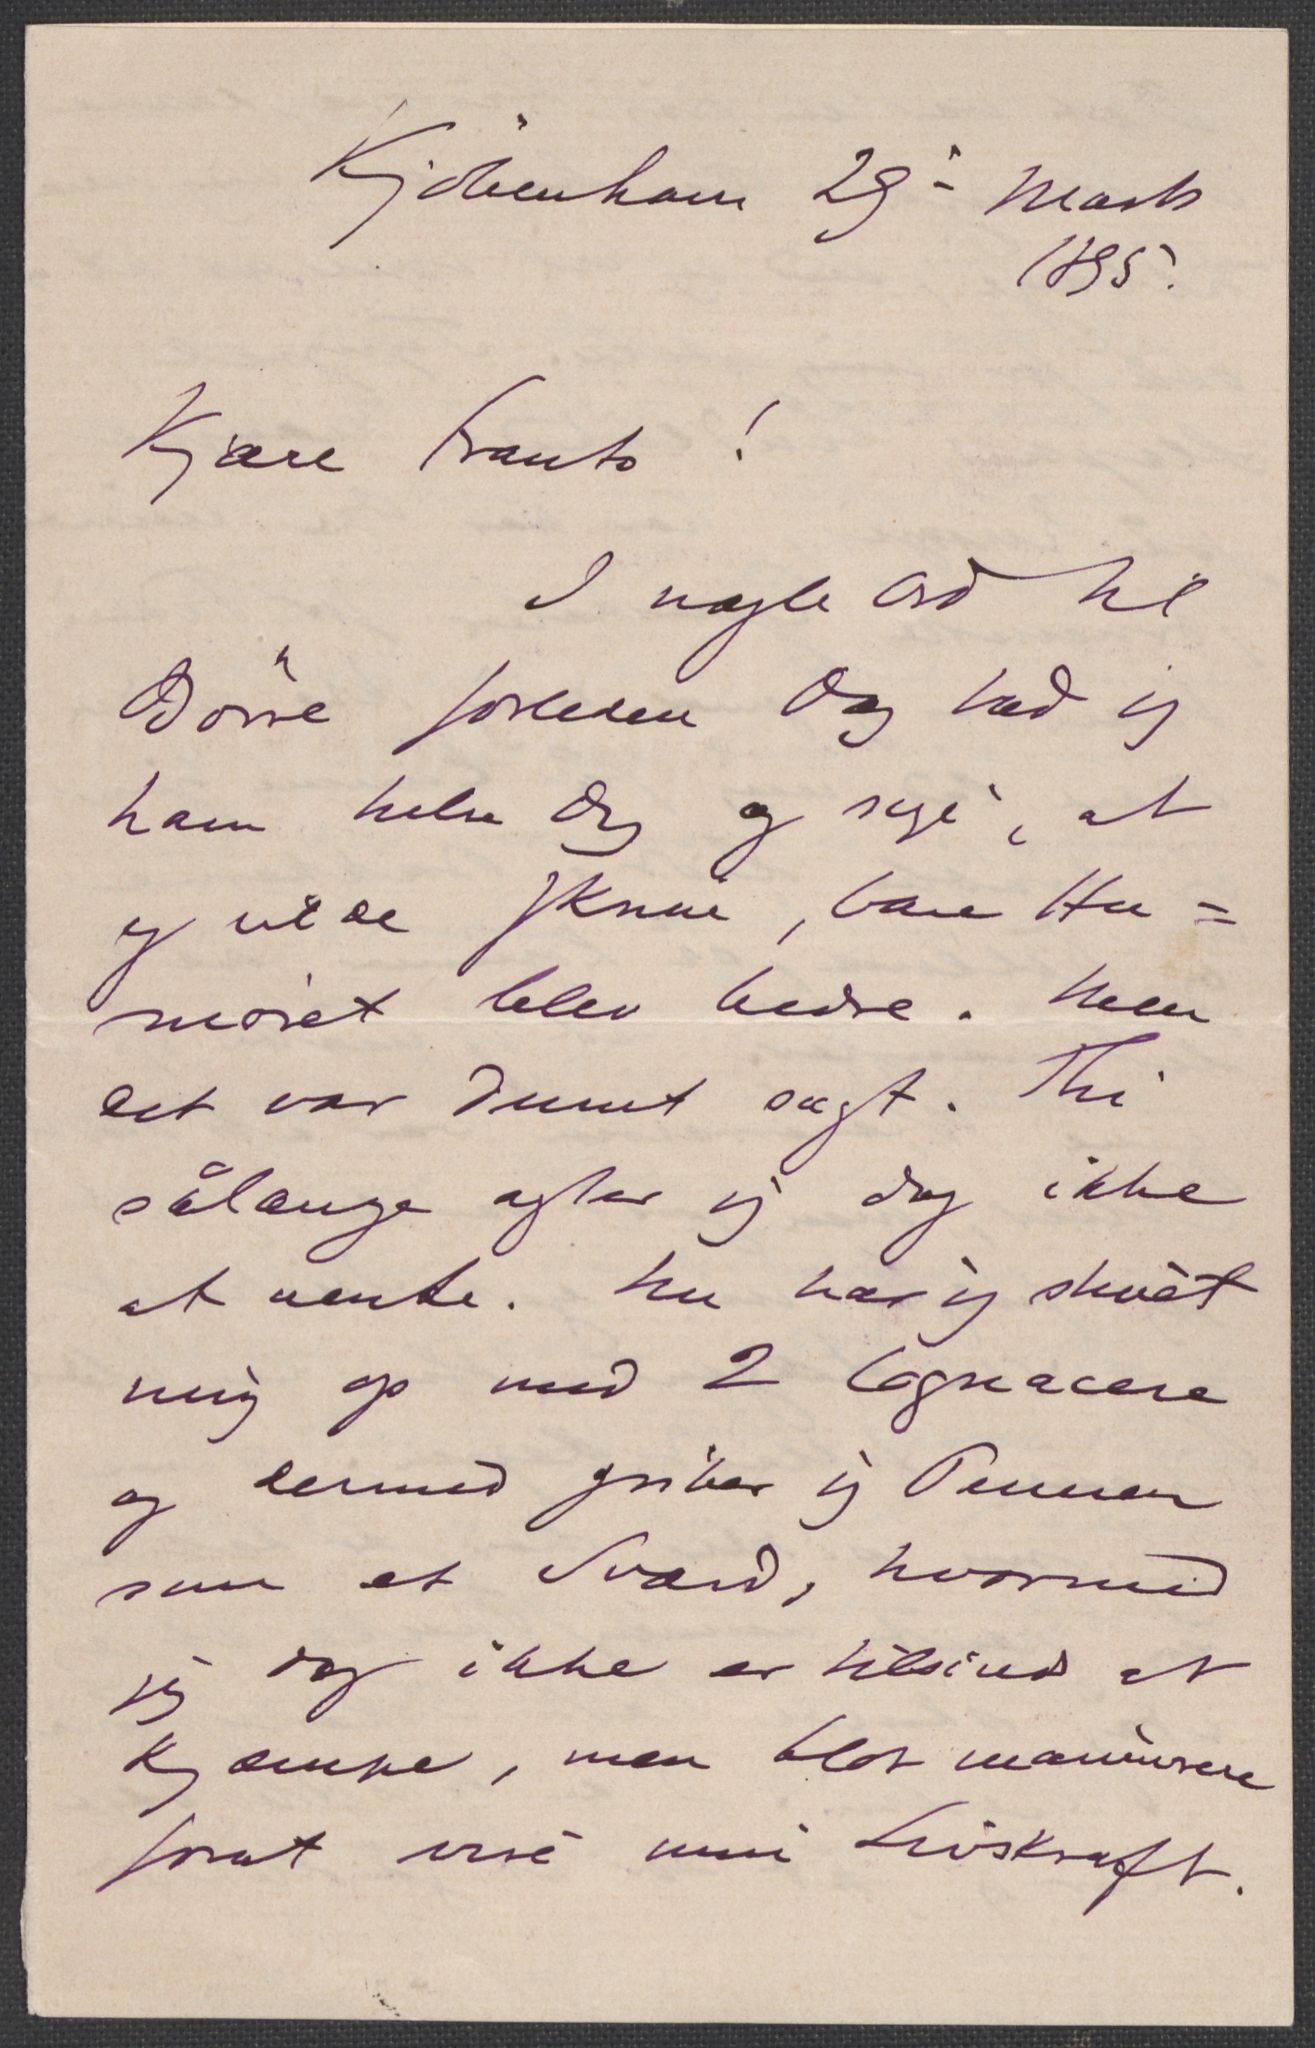 Kjöbenhavn 29- Marts
1895.
Kjære Frants!
I nogle Ord til
Börre forleden Dag bad jeg
ham hilse Dig og sige, at
jeg vilde skrive, bare Hu=
möret blev bedre. Men
det var dumt sagt. Thi
sålænge agter jeg dog ikke
at vente. Nu har jeg skruet
mig op med 2 Cognacere
og dermed griber jeg Pennen
som et Sværd, hvormed
jeg dog ikke er tilsinds at
kjæmpe, men blot manövrere
forat vise min Livskraft.